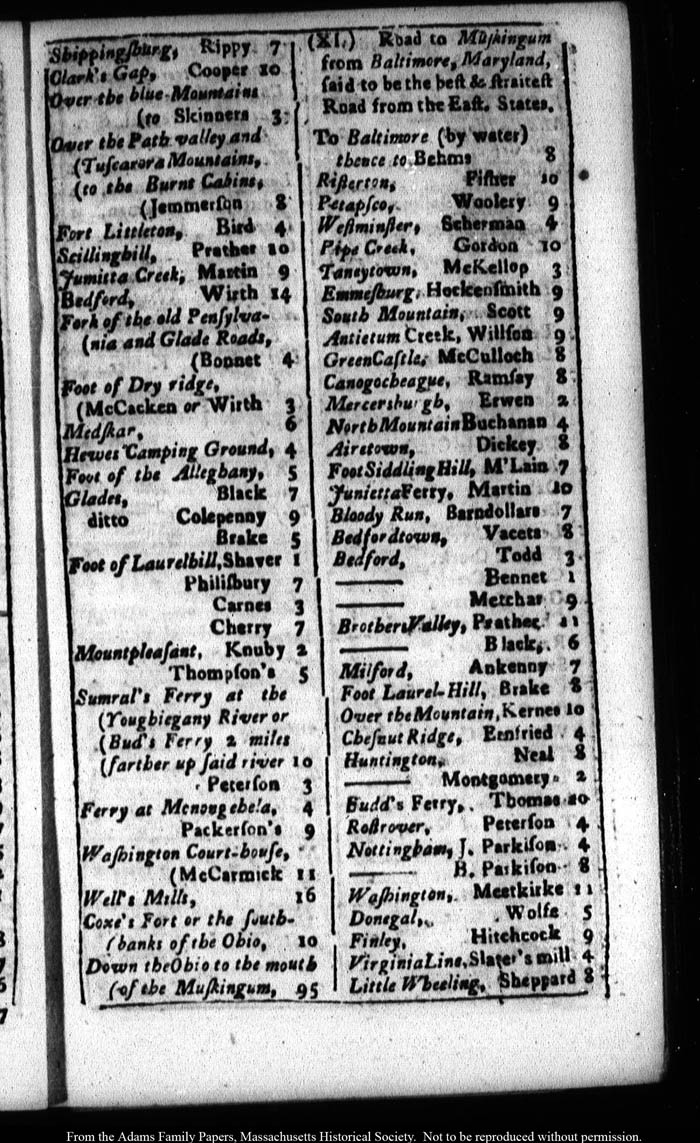 Shippingſburg, Rippy 7
Clark's Gap, Cooper 10
Over the blue Mountains
(to Skinners 3
Over the Path valley and
(Tuſcarora Mountains,
(to the Burnt Cabins,
(Jemmerſon 8
Fort Littleton, Bird 4
Scillinghill, Prather 10
Jumitta Creek, Martin 9
Bedford, Wirth 14
Fork of the old Penſylva-
(nia and Glade Roads,
(Bonnet 4
Foot of Dry ridge,
(McCacken or Wirth 3
Medſkar, 6
Hewes Camping Ground, 4
Foot of the Alleghany, 5
Glades, Black 7
ditto Colepenny 9
Brake 5
Foot of Laurelhill, Shaver 1
Philiſbury 7
Carnes 3
Cherry 7
Mountpleaſant, Knuby 2
Thompſon's 5
Sumral's Ferry at the
(Yougbiegany River or
(Bud's Ferry 2 miles
(farther up ſaid river 10
Peterſon 3
Ferry at Monongehela, 4
Packerſon's 9
Waſhington Court-houſe,
(McCarmick 11
Well's Mills, 16
Coxe's Fort or the ſouth-
(banks of the Ohio, 10
Down the Ohio to the mouth
(of the Muſkingum, 95
(XI.) Road to Muſkingum
from Baltimore, Maryland,
ſaid to be the beſt & ſtraiteſt
Road from the Eaſt. States.
To Baltimore (by water)
thence to Behms 8
Riſterton, Fiſher 10
Petapſco, Woolery 9
Weſtminſter, Scherman 4
Pipe Creek, Gordon 10
Taneytown, McKellop 3
Emmeſburg, Hockenſmith 9
South Mountain, Scott 9
Antietum Creek, Willſon 9
Green Caſtle, McCulloch 8
Canogocheague, Ramſay 8
Mercersburgh, Erwen 2
North Mountain Buchanan 4
Airetown, Dickey 8
Foot Siddling Hill, M'Lain 7
Junietta Ferry, Martin 10
Bloody Run, Barndollars 7
Bedfordtown, Vacets 8
Bedford, Todd 3
—— Bennet 1
—— Metchar 9
Brothers Valley, Prather 11
—— Black, 6
Milford, Ankenny 7
Foot Laurel-Hill, Brake 8
Over the Mountain, Kernes 10
Cheſnut Ridge, Eenfried 4
Huntington, Neal 8
—— Montgomery 2
Budd's Ferry, Thomas 10
Roſtrover, Peterſon 4
Nottingham, J. Parkiſon 4
—— B. Parkiſon 8
Waſhington, Meetkirke 11
Donegal, Wolfe 5
Finley, Hitchcock 9
Virginia Line, Slater's mill 4
Little Wheeling, Sheppard 8
7
From the Adams Family Papers, Massachusetts Historical Society. Not to be reproduced without permission.